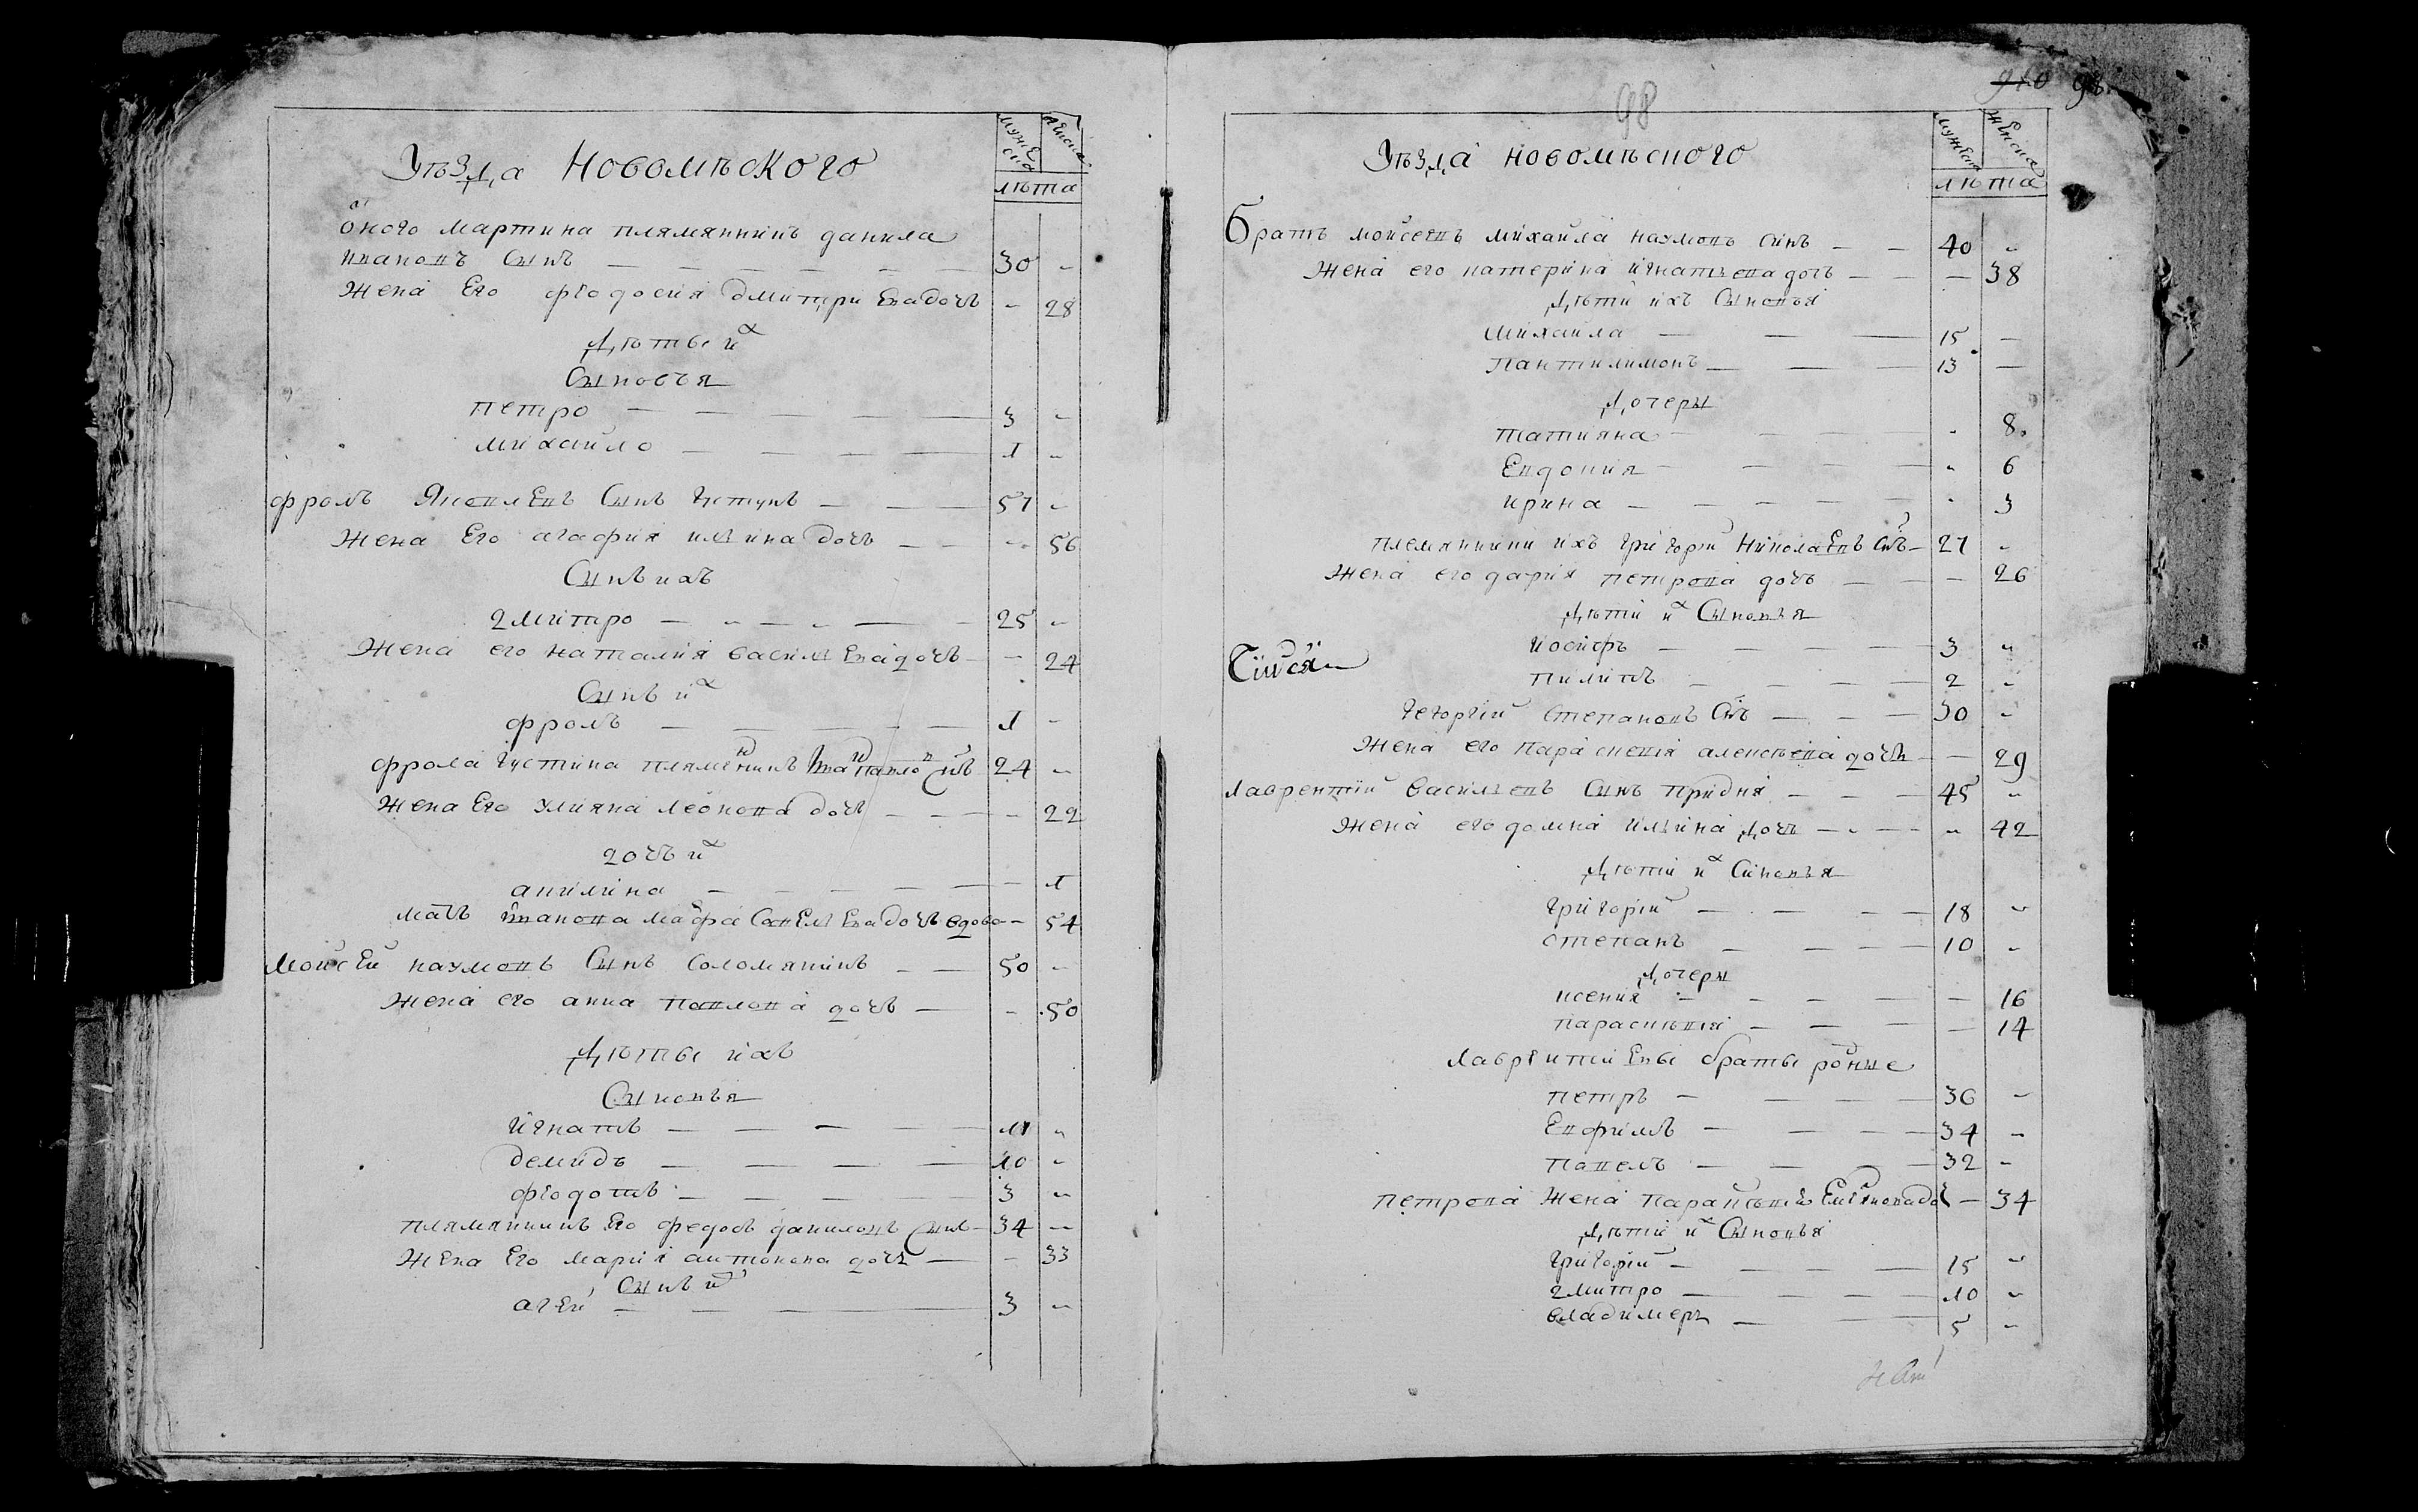 Уѣзда Новомѣского
мужеска женска
лѣта
оного мартина плямянникъ данила
ивановъ сынъ — 30 -
жена Его фѣодосия дмитриЕва дочъ - 28
Дѣты их
Сыновъя
петро — 3 -
михайло — 1 -
фромъ ЯковлЕвъ Сынъ густунъ — 57 -
жена Его агафия илъина дочъ — - 56
Сынъ ихъ
дмитро — 25 -
жена его наталия василъЕва дочъ - 24
Сынъ их
фромъ — 1 -
фрома густина пляменникъ Павло Снъ 24 -
жена Его улияна леонова дочъ — - 22
дочъ их
акилина — - 1
мать Иванова мафра СавЕлъЕва дочъ вдова - 54
МойсЕй наумовъ Сынъ соломяникъ — 50 -
жена его анна павлова дочъ — - 50
Дѣты ихъ
Сыновъя
игнатъ — 11 -
демидъ — 10 -
фѣодотъ — 3 -
плямянникъ Его федосъ даниловъ Сынъ 34 -
жЕна Его мария антонова дочъ — - 33
Сынъ их
агЕй — 3 -
98
910 98
Уѣзда новомѣского
мужеска женска
лѣта
Братъ мойсеевъ михайла наумовъ синъ — 40 -
жена его катерина игнатъева дочъ — - 38
Дѣти ихъ Сыновъя
михайла — 15 -
пантилимонъ — 13 -
Дочеры
татияна — - 8
Евдокия — - 6
ирина — - 3
племянники ихъ григорий НиколаЕвъ Снъ 27 -
жена его дария петрова дочъ — - 26
Дѣти их Сыновъя
иосифъ — 3 -
пилипъ — 2 -
георгий степановъ Снъ — 30 -
жена его параскевия алексѣева дочъ — - 29
лаврентий василъевъ Сынъ придня — 45 -
жена его домна илъина дочъ — - 42
Дѣти их Синовъя
григорий — 18 -
степанъ — 10 -
Дочеры
ксения — - 16
параскѣвия — - 14
лаврентиЕвы браты родные
петръ — 36 -
Евфимъ — 34 -
павелъ — 32 -
петрова жена - 34
Дѣти их Сыновъя
григорий — 15 -
дмитро — 10 -
владимеръ — 5 -